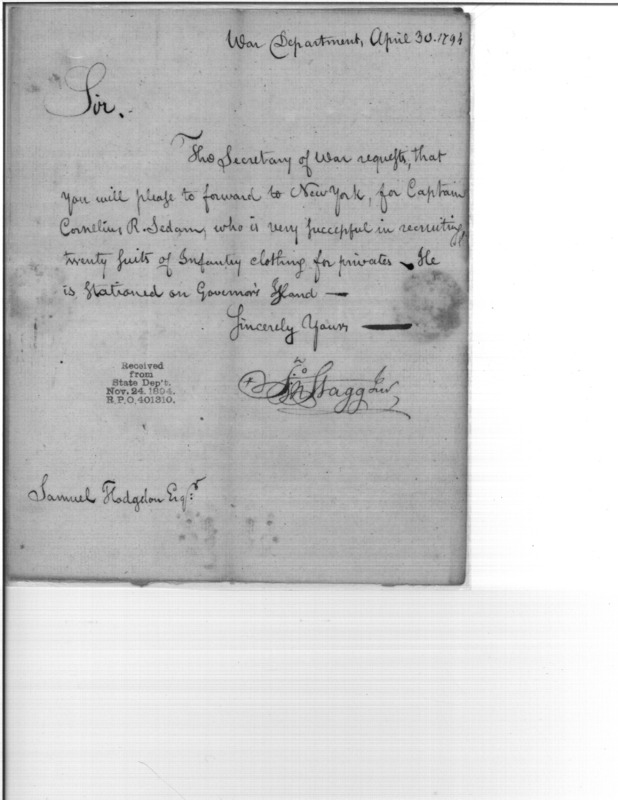 War Department, April 30. 1794
Sir,
The Secretary of War requests, that
you will please to forward to New York, for Captain
Cornelius R. Sedam, who is very successful in recruiting,
twenty suits of Infantry clothing for privates – He
is stationed on Governor's Island —
Sincerely Yours —
Jno Stagg Junr
Received
from
State Dep't.
Nov. 24. 1894.
R.P.O, 401310.
Samuel Hodgdon Esqr.